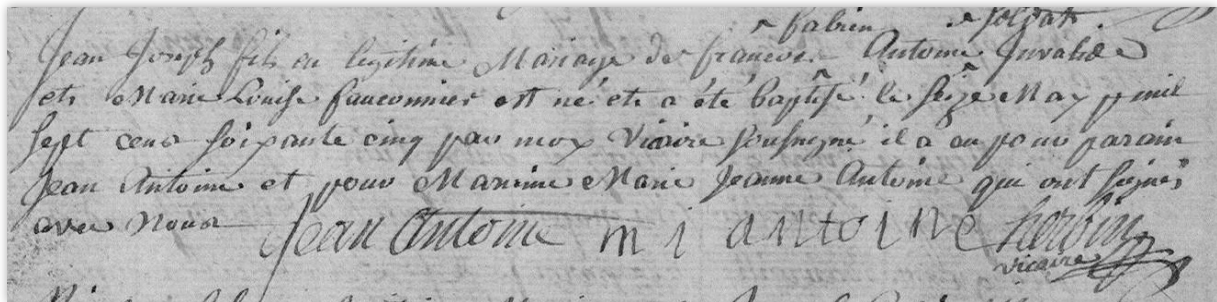 fabien soldat
Jean Joseph fils en legitime Mariage de francois Antoine Invalide
et Marie Louise fauconnier est né et a été baptisé le seize May mil
sept cens soixante cinq par moy vicaire soussigné il a eu pour parain
Jean Antoine et pour Maraine Marie Jeanne Antoine qui ont signés
avec nous Jean Antoine m j antoine herbin
vicaire